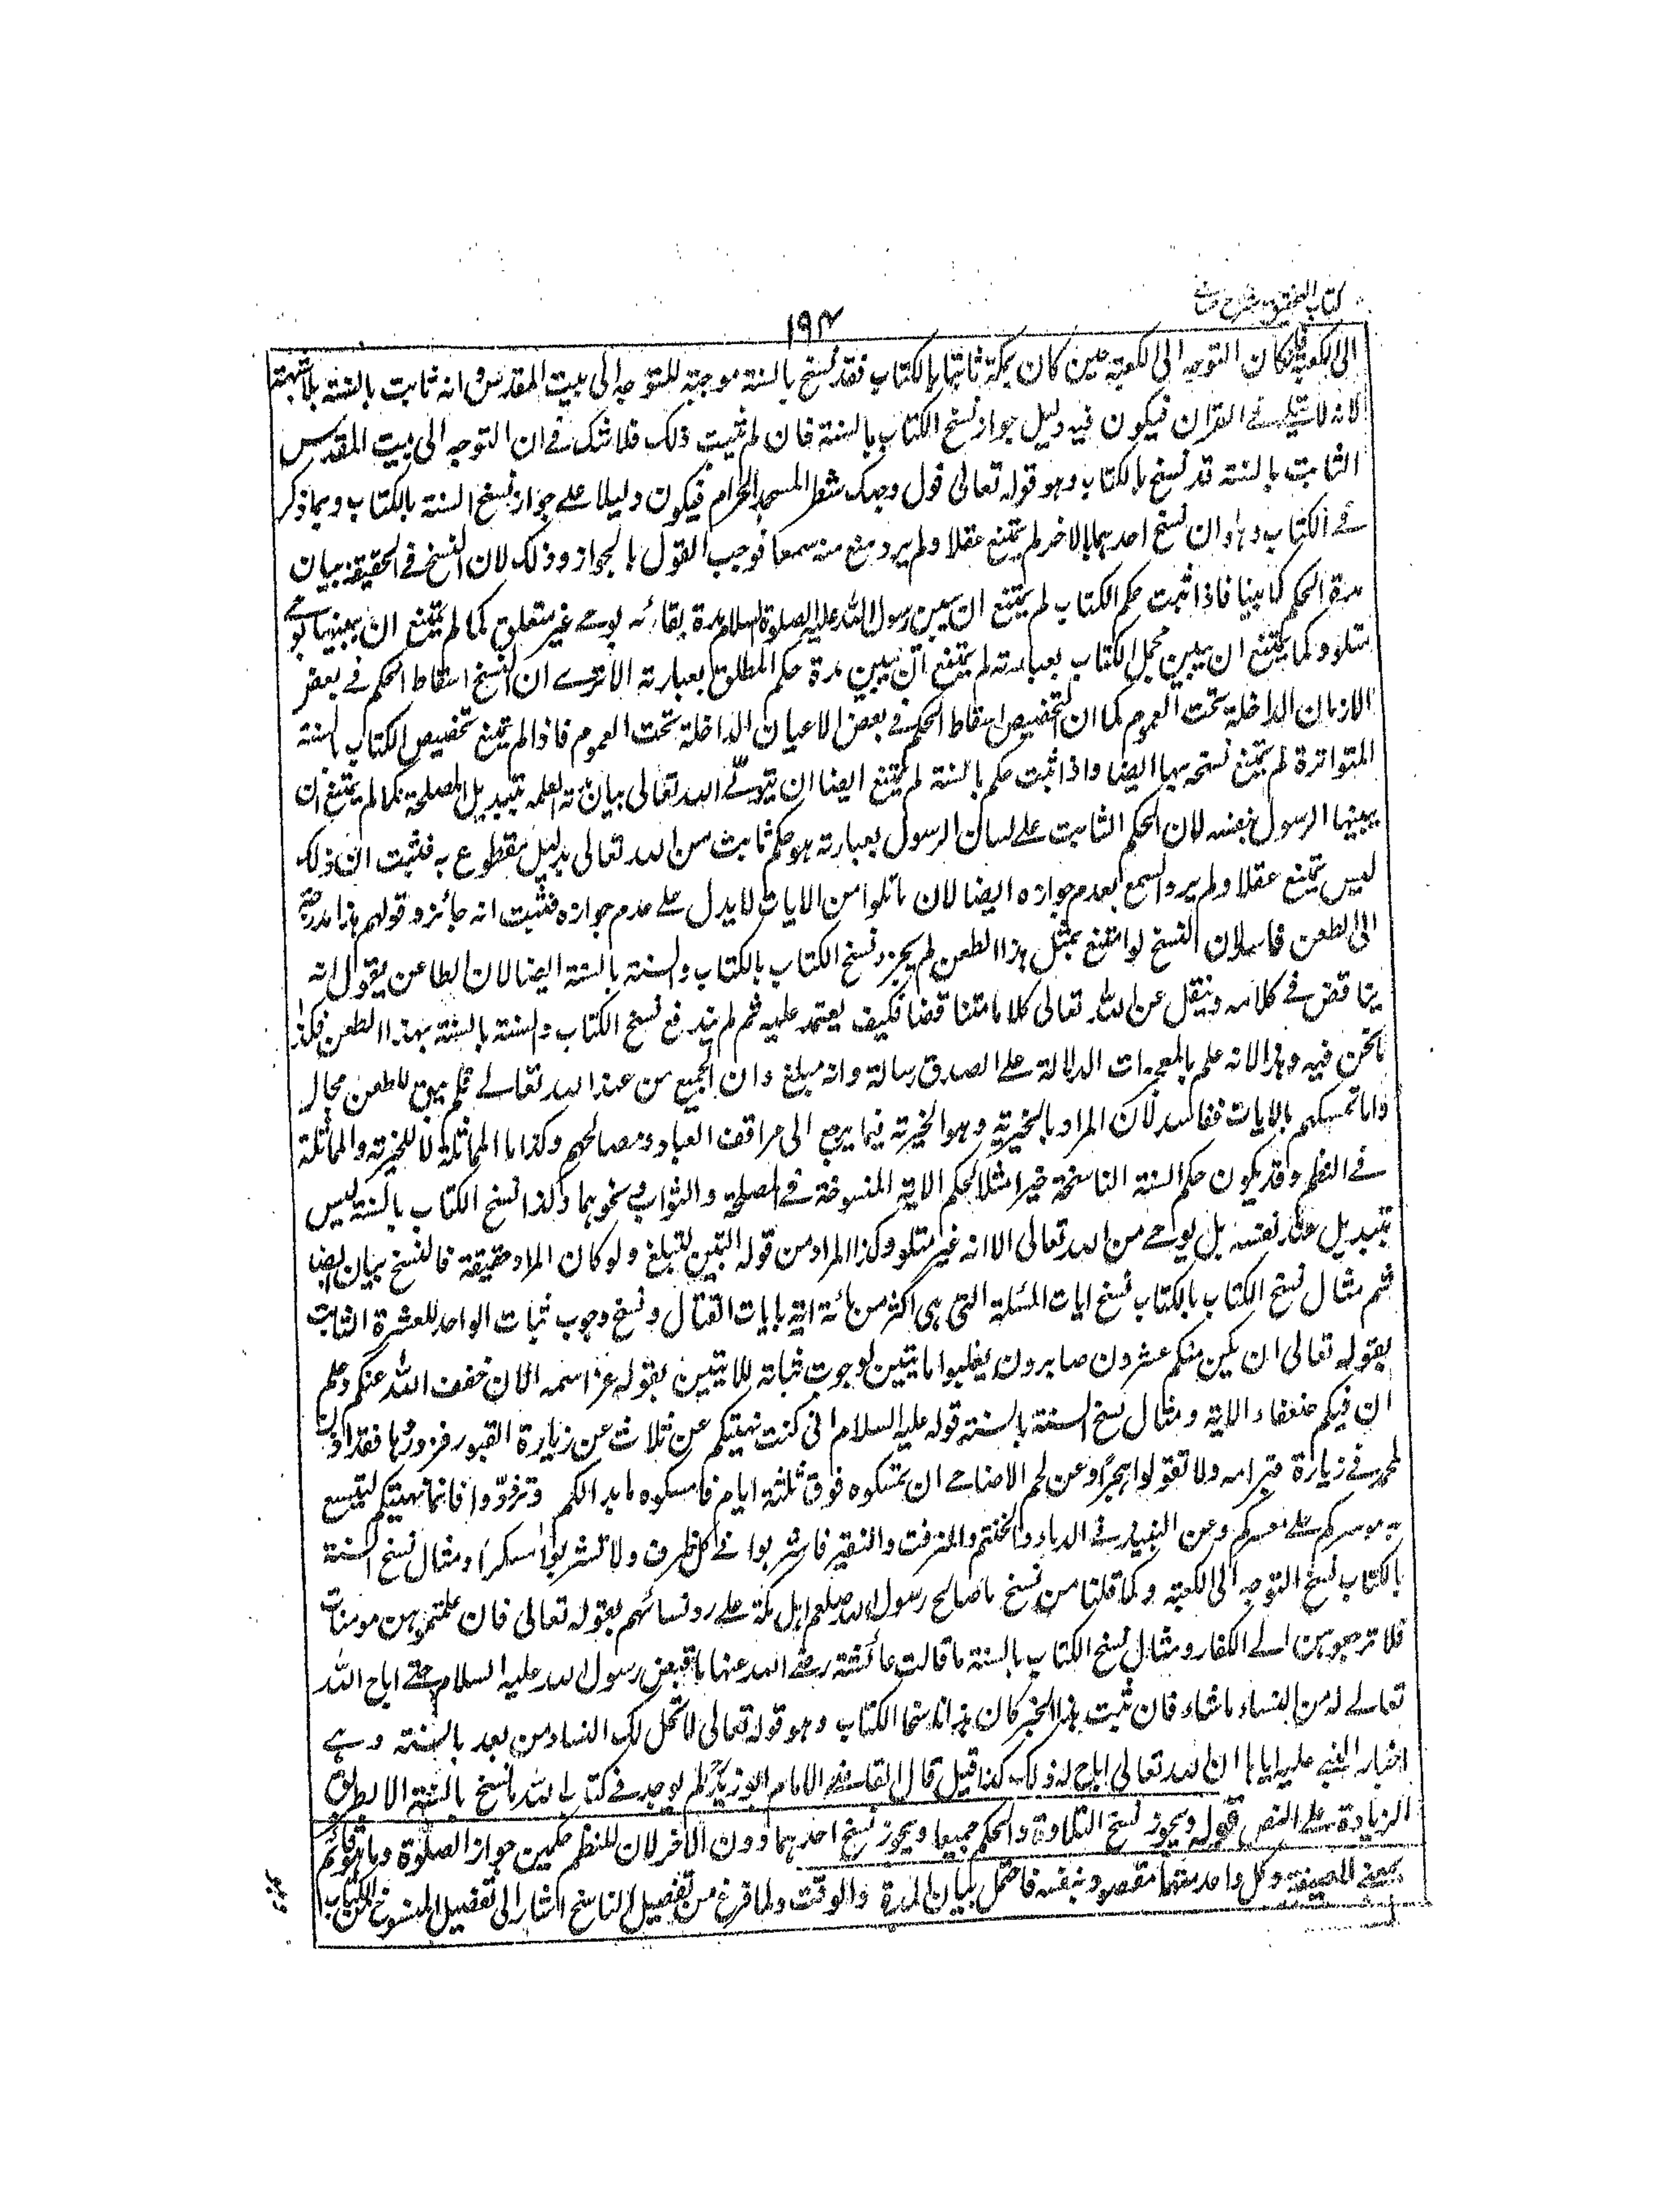 كتاب التحقيق شرح حسامي
١٩٤
الى الكعبة فان كان التوجه الى الكعبة حين كان بمكة ثابتا بالكتاب فقد نسخ بالسنة موجبة للتوجه الى بيت المقدس وانه ثابت بالسنة بلا شبهة
لانه لا يتلى في القران فيكون فيه دليل جواز نسخ الكتاب بالسنة فان لم يثبت ذلك فلا شك في ان التوجه الى بيت المقدس
الثابت بالسنة قد نسخ بالكتاب وهو قوله تعالى فول وجهك شطر المسجد الحرام فيكون دليلا على جواز نسخ السنة بالكتاب وبما ذكر
في الكتاب وهو ان نسخ احدهما بالاخر لم يمتنع عقلا ولم يرد منع منه سمعا فوجب القول بالجواز وذلك لان النسخ في الحقيقة بيان
مدة الحكم كما بينا فاذا ثبت حكم الكتاب لم يمتنع ان يبين رسول الله عليه الصلوة السلام مدة بقائه بوحي غير متعلق كما لم يمتنع ان يبينها بوحي
متلو وكما لم يمتنع ان يبين مجمل الكتاب بعبارته لم يمتنع ان يبين مدة حكم المطلق بعبارته الا ترى ان النسخ اسقاط الحكم في بعض
الازمان الداخلة تحت العموم كما ان التخصيص اسقاط الحكم في بعض الاعيان الداخلة تحت العموم فاذا لم يمتنع تخصيص الكتاب بالسنة
المتواترة لم يمتنع نسخه بها ايضا واذا ثبت حكم بالسنة لم يمتنع ايضا ان يتولى الله تعالى بيان مدته لعلمه بتبديل المصلحة كما لم يمتنع ان
يبينها الرسول بنفسه لان الحكم الثابت على لسان الرسول بعبارته هو حكم ثابت من الله تعالى بدليل مقطوع به فثبت ان ذلك
ليس بممتنع عقلا ولم يرد السمع بعدم جوازه ايضا لان ما تلوا من الايات لا يدل على عدم جوازه فثبت انه جائز وقولهم هذا مدرجة
الى الطعن فاسد لان النسخ لو امتنع بمثل هذا الطعن لم يجز نسخ الكتاب بالكتاب والسنة بالسنة ايضا لان الطاعن يقول انه
يناقض في كلامه وينقل عن الله تعالى كلاما متناقضا فكيف يعتمد عليه ثم لم يندفع نسخ الكتاب والسنة بالسنة بهذا الطعن فكذا
ما نحن فيه وهذا لانه علم بالمعجزات الدالة على الصدق رسالة وانه مبلغ وان الجميع من عند الله تعالى فلم يبق للطعن مجال
واما تمسكهم بالايات ففاسد لان المراد بالخيرية وهو الخيرية فيما يرجع الى مرافق العباد ومصالحهم وكذا المماثلة لا للخيرية والمماثلة
في النظم وقد يكون حكم السنة الناسخة خيرا او مثلا لحكم الاية المنسوخة في المصلحة والثواب ونحوهما وكذا نسخ الكتاب بالسنة ليس
بتبديل من تلقاء نفسه بل بوحي من الله تعالى الا انه غير متلو وكذا المراد من قوله لتبين لتبلغ ولو كان المراد حقيقة فالنسخ بيان ايضا
ثم مثال نسخ الكتاب بالكتاب نسخ ايات المسئلة التي هي اكثر من مائة اية بايات القتال ونسخ وجوب ثبات الواحد للعشرة الثابت
بقوله تعالى ان يكن منكم عشرون صابرون يغلبوا مايتين لوجوب ثباته للاثنين بقوله عز اسمه الان خفف الله عنكم وعلم
ان فيكم ضعفاء الاية ومثال نسخ السنة بالسنة قوله عليه السلام اني كنت نهيتكم عن ثلاث عن زيارة القبور فزوروها فقد اذن
لمحمد في زيارة قبر امه ولا تقولوا هجرا وعن لحم الاضاحي ان تمسكوه فوق ثلثة ايام فامسكوه ما بدا لكم وتزودوا فانما نهيتكم ليتسع
به موسركم على معسركم وعن النبيذ في الدباء والحنتم والمزفت والنقير فاشربوا في كل ظرف ولا تشربوا مسكرا ومثال نسخ السنة
بالكتاب نسخ التوجه الى الكعبة وكما قلنا من نسخ ما صالح رسول الله صلعم اهل مكة على رد نسائهم بقوله تعالى فان علمتموهن مومنات
فلا ترجعوهن الى الكفار ومثال نسخ الكتاب بالسنة ما قالت عائشة رضي الله عنها ما قبض رسول الله عليه السلام حتى اباح الله
تعالى له من النساء ما شاء فان ثبت هذا الخبر كان هذا ناسخا للكتاب وهو قوله تعالى لا تحل لك النساء من بعد بالسنة وهي
اخبار النبي عليه اياها ان الله تعالى اباح له ذلك كذا قيل قال القاضي الامام ابو زيد لم يوجد في كتاب الله ما نسخ بالسنة الا بطريق
الزيادة على النص قوله ويجوز نسخ التلاوة والحكم جميعا ويجوز نسخ احدهما دون الاخر لان للنظم حكمين جواز الصلوة وما هو قائم
بمعنى الصيغة وكل واحد منهما مقصود بنفسه فاحتمل بيان المدة والوقت ولما فرغ من تفصيل الناسخ اشار الى تفصيل المنسوخ من الكتاب